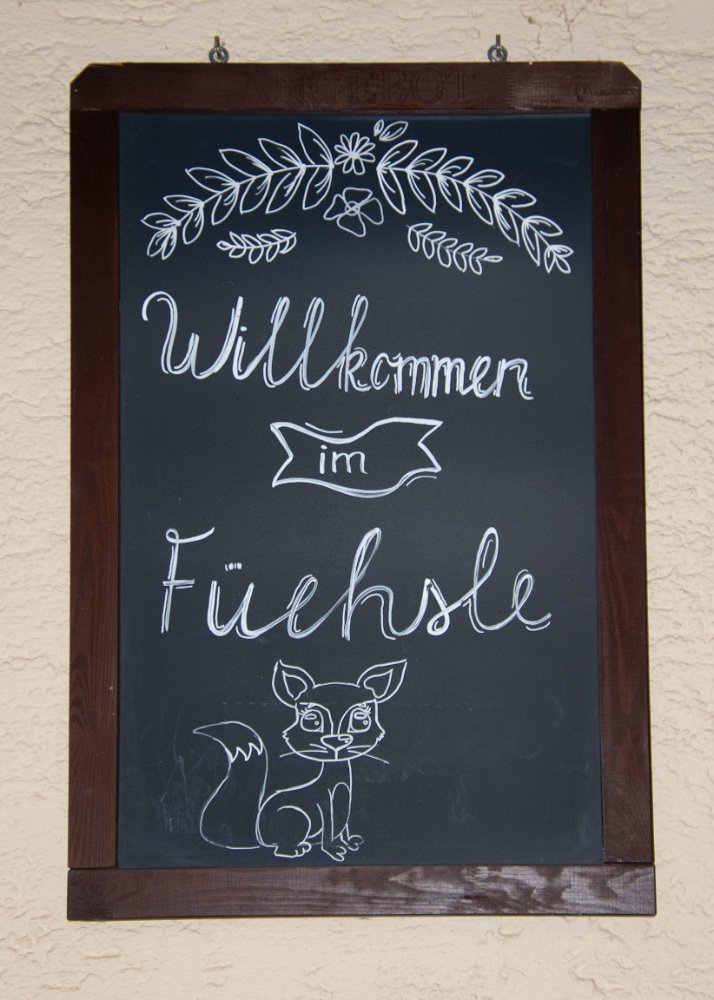 ANGEBOT
Willkommen
im
Füchsle